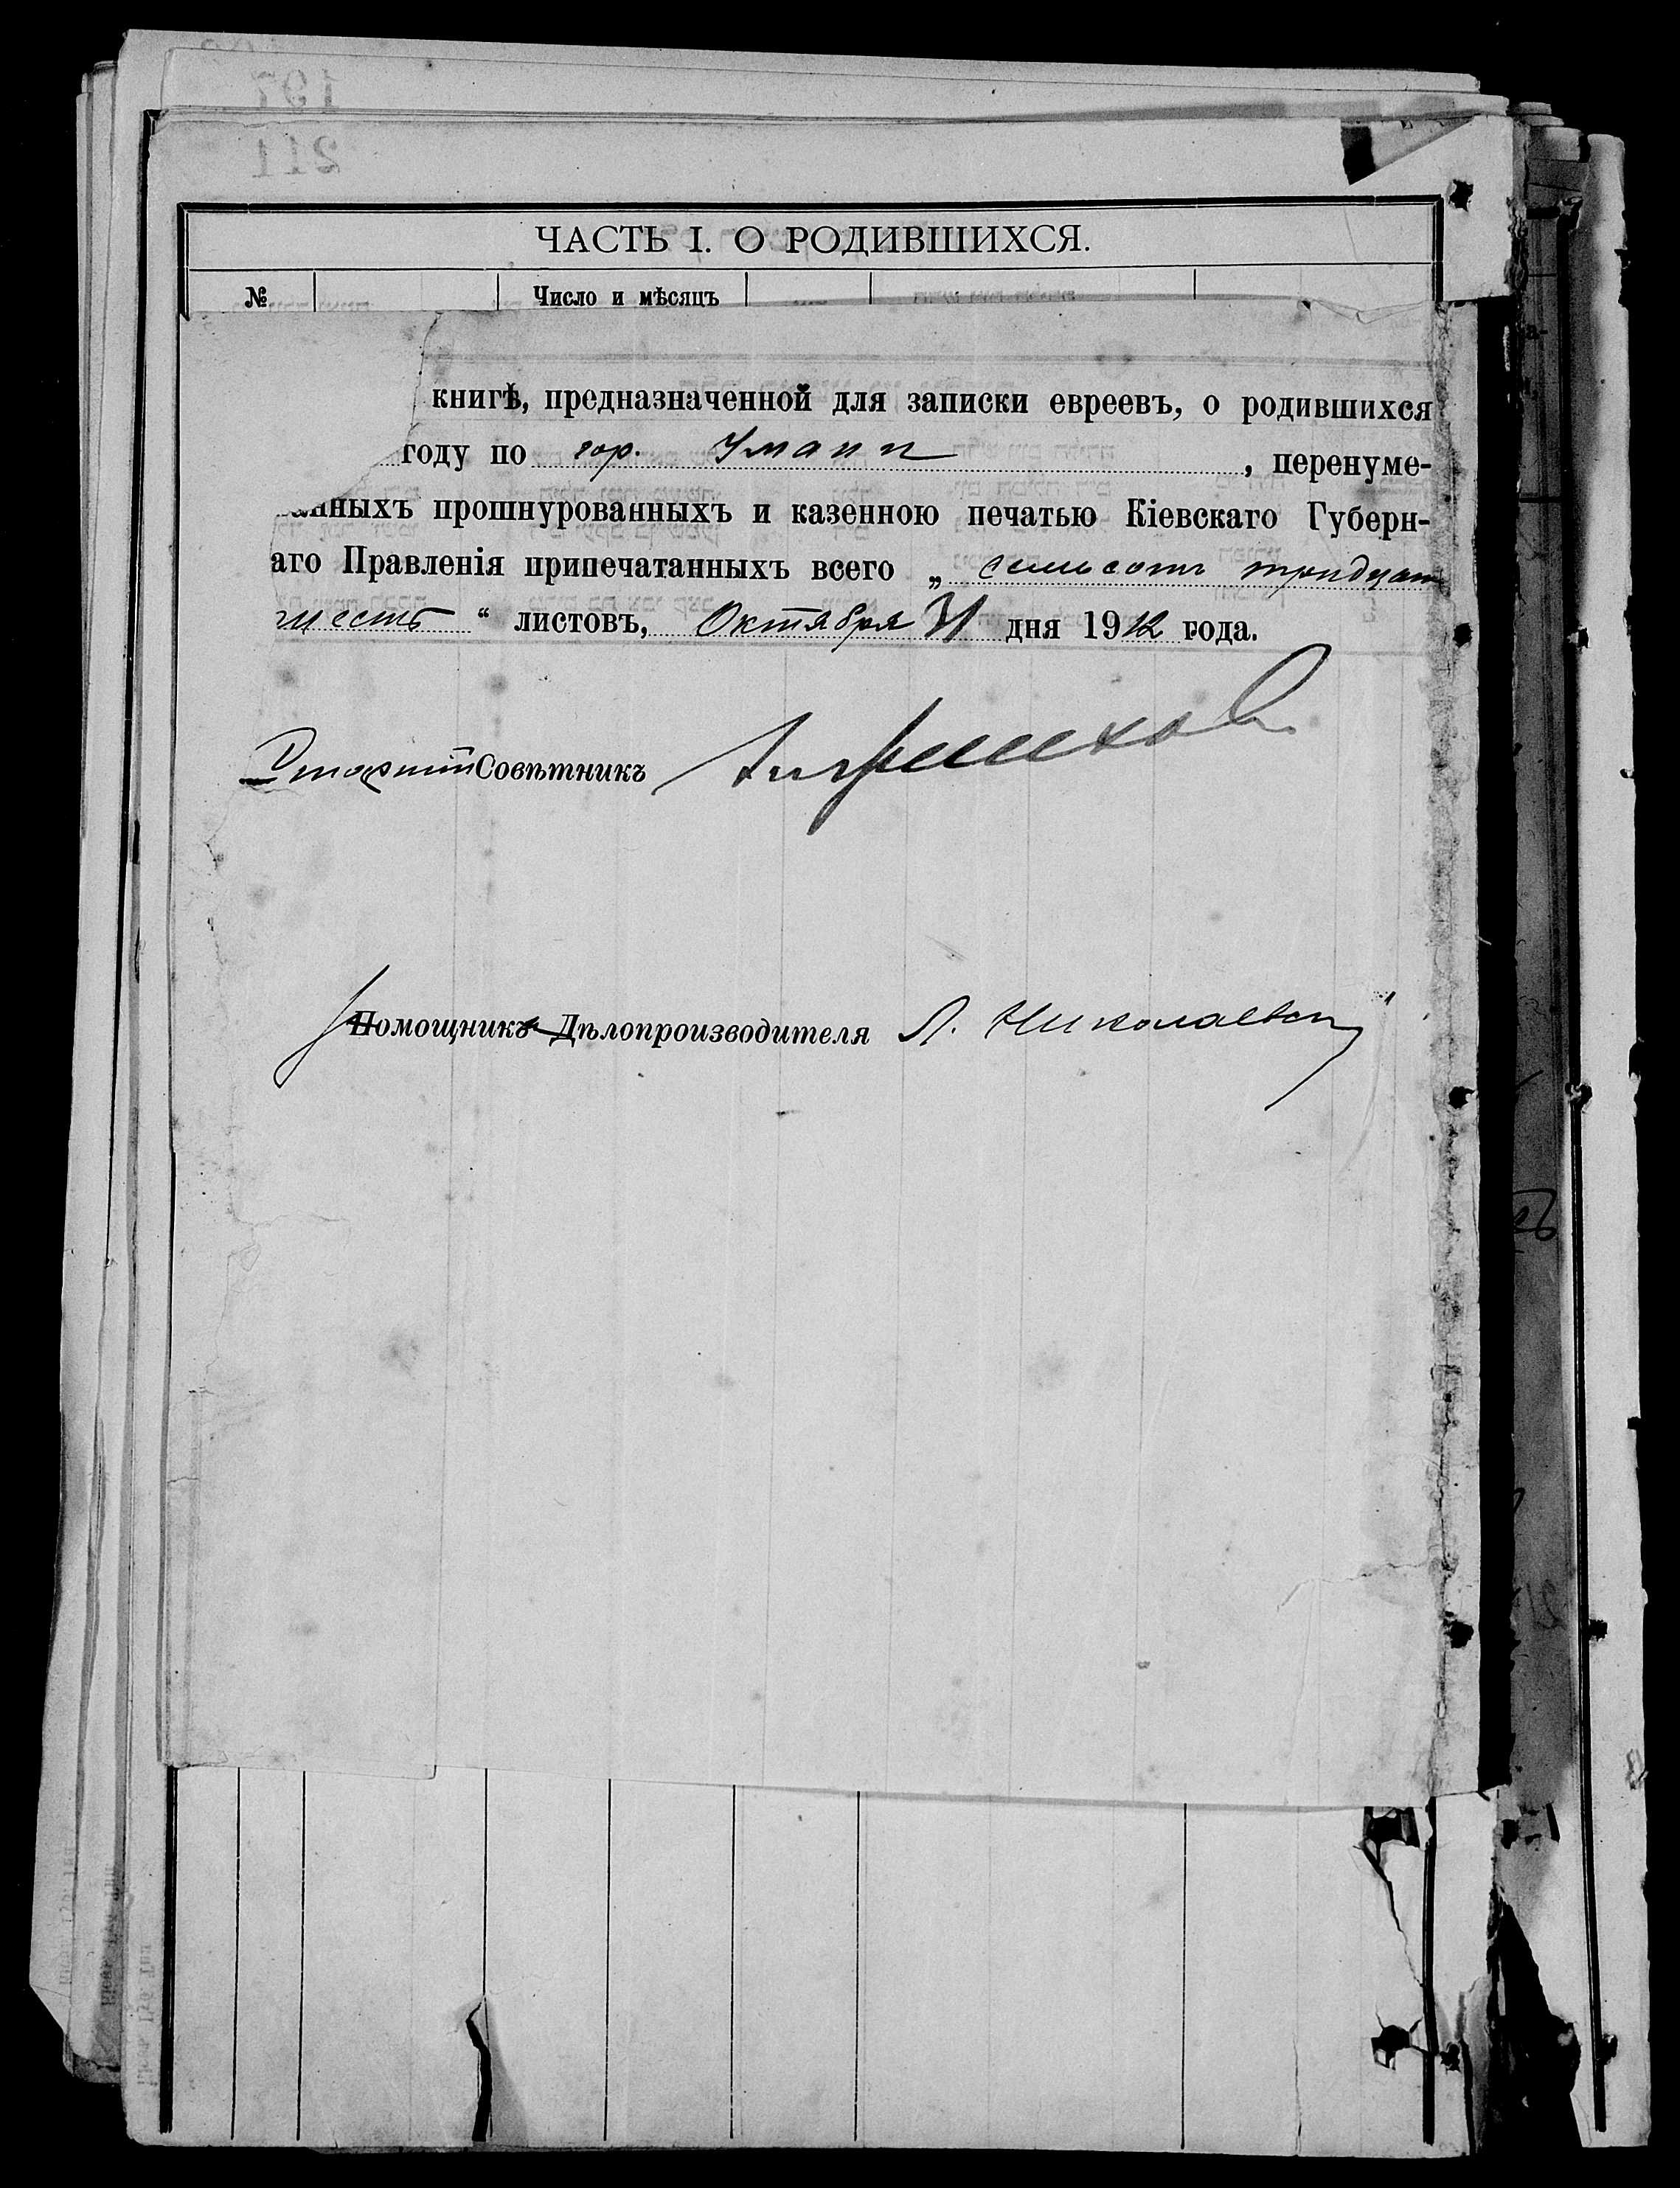 197
211
ЧАСТЬ I. О РОДИВШИХСЯ.
№ Число и мѣсяцъ
книгѣ, предназначенной для записки евреевъ, о родившихся
году по гор. Умани, перенуме-
анныхъ прошнурованныхъ и казенною печатью Кіевскаго Губерн-
аго Правленія припечатанныхъ всего „ семьсотъ тридцать
шесть “ листовъ, Октября дня 1912 года.
Старшій Совѣтникъ
Помощникъ Дѣлопроизводителя Л. Николаевск